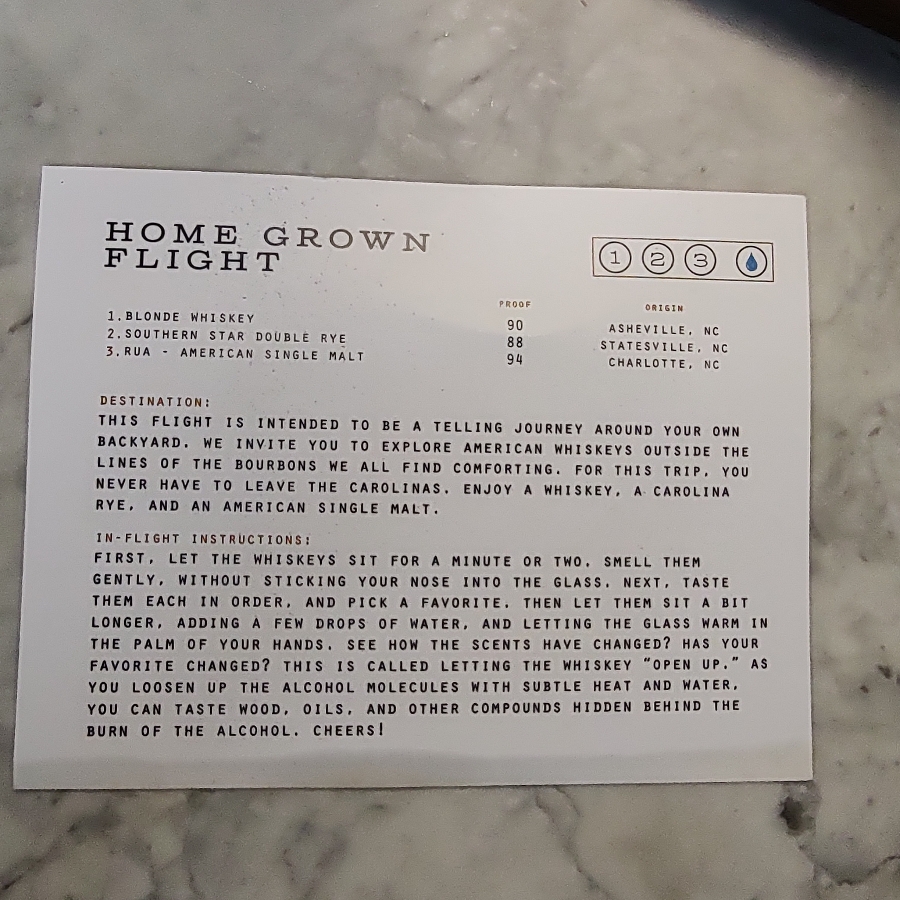 HOME GROWN
FLIGHT
1 2 3
PROOF ORIGIN
1.BLONDE WHISKEY 90 ASHEVILLE, NC
2.SOUTHERN STAR DOUBLE RYE 88 STATESVILLE, NC
3.RUA - AMERICAN SINGLE MALT 94 CHARLOTTE, NC
DESTINATION:
THIS FLIGHT IS INTENDED TO BE A TELLING JOURNEY AROUND YOUR OWN
BACKYARD. WE INVITE YOU TO EXPLORE AMERICAN WHISKEYS OUTSIDE THE
LINES OF THE BOURBONS WE ALL FIND COMFORTING. FOR THIS TRIP, YOU
NEVER HAVE TO LEAVE THE CAROLINAS. ENJOY A WHISKEY, A CAROLINA
RYE, AND AN AMERICAN SINGLE MALT.
IN-FLIGHT INSTRUCTIONS:
FIRST, LET THE WHISKEYS SIT FOR A MINUTE OR TWO. SMELL THEM
GENTLY, WITHOUT STICKING YOUR NOSE INTO THE GLASS. NEXT, TASTE
THEM EACH IN ORDER, AND PICK A FAVORITE. THEN LET THEM SIT A BIT
LONGER, ADDING A FEW DROPS OF WATER, AND LETTING THE GLASS WARM IN
THE PALM OF YOUR HANDS. SEE HOW THE SCENTS HAVE CHANGED? HAS YOUR
FAVORITE CHANGED? THIS IS CALLED LETTING THE WHISKEY “OPEN UP.” AS
YOU LOOSEN UP THE ALCOHOL MOLECULES WITH SUBTLE HEAT AND WATER,
YOU CAN TASTE WOOD, OILS, AND OTHER COMPOUNDS HIDDEN BEHIND THE
BURN OF THE ALCOHOL. CHEERS!